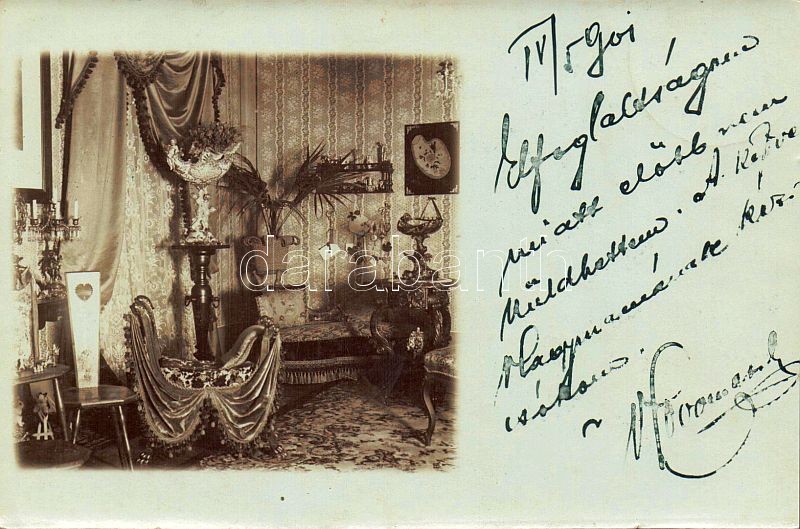 IV/5 901
Elfoglaltságom
miatt előbb nem
küldhettem. A kedves
Nagymamának kézi
csókom.
darabanth